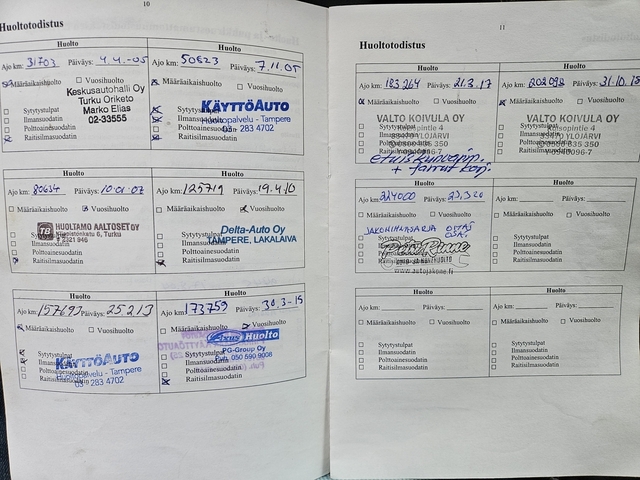 10
Huoltotodistus
Huolto
Ajo km: 31703 Päiväys: 4.4.-05
Määräaikaishuolto Vuosihuolto
Keskusautohalli Oy
Turku Oriketo
Marko Elias
02-33555
Sytytystulpat
Ilmansuodatin
Polttoainesuodatin
Raitisilmasuodatin
Huolto
Ajo km: 50623 Päiväys: 7.11.05
Määräaikaishuolto Vuosihuolto
KÄYTTÖAUTO
Huoltopalvelu - Tampere
03- 283 4702
Sytytystulpat
Ilmansuodatin
Polttoainesuodatin
Raitisilmasuodatin
Huolto
Ajo km: 80634 Päiväys: 10.01.07
Määräaikaishuolto Vuosihuolto
HUOLTAMO AALTOSET OY
Sytytystulpat
Ilmansuodatin
Polttoainesuodatin
Raitisilmasuodatin
Huolto
Ajo km: 125719 Päiväys: 19.4.10
Määräaikaishuolto Vuosihuolto
Delta-Auto Oy
TAMPERE, LAKALAIVA
Sytytystulpat
Ilmansuodatin
Polttoainesuodatin
Raitisilmasuodatin
Huolto
Ajo km: 157693 Päiväys: 25.2.13
Määräaikaishuolto Vuosihuolto
Sytytystulpat
Ilmansuodatin
KÄYTTÖAUTO
Huoltopalvelu - Tampere
03- 283 4702
Polttoainesuodatin
Raitisilmasuodatin
Huolto
Ajo km: 173759 Päiväys: 30.3-15
Määräaikaishuolto Vuosihuolto
Huolto
PG-Group Oy
Puh. 050 590 9008
Sytytystulpat
Ilmansuodatin
Polttoainesuodatin
Raitisilmasuodatin
11
Huoltotodistus
Huolto
Ajo km: 183264 Päiväys: 21.3.17
Määräaikaishuolto Vuosihuolto
VALTO KOIVULA OY
Kolsopintie 4
33470 YLÖJÄRVI
Sytytystulpat
Ilmansuodatin
Polttoainesuodatin
Raitisilmasuodatin
Huolto
Ajo km: 202098 Päiväys: 31.10.18
Määräaikaishuolto Vuosihuolto
VALTO KOIVULA OY
Kolsopintie 4
33470 YLÖJÄRVI
Sytytystulpat
Ilmansuodatin
Polttoainesuodatin
Raitisilmasuodatin
Huolto
Ajo km: 224000 Päiväys: 23.3.20
Määräaikaishuolto Vuosihuolto
JAKOHIHNASARJA
Sytytystulpat
Ilmansuodatin
Polttoainesuodatin
Raitisilmasuodatin
www.autojakone.fi
Huolto
Ajo km: Päiväys:
Määräaikaishuolto Vuosihuolto
Sytytystulpat
Ilmansuodatin
Polttoainesuodatin
Raitisilmasuodatin
Huolto
Ajo km: Päiväys:
Määräaikaishuolto Vuosihuolto
Sytytystulpat
Ilmansuodatin
Polttoainesuodatin
Raitisilmasuodatin
Huolto
Ajo km: Päiväys:
Määräaikaishuolto Vuosihuolto
Sytytystulpat
Ilmansuodatin
Polttoainesuodatin
Raitisilmasuodatin